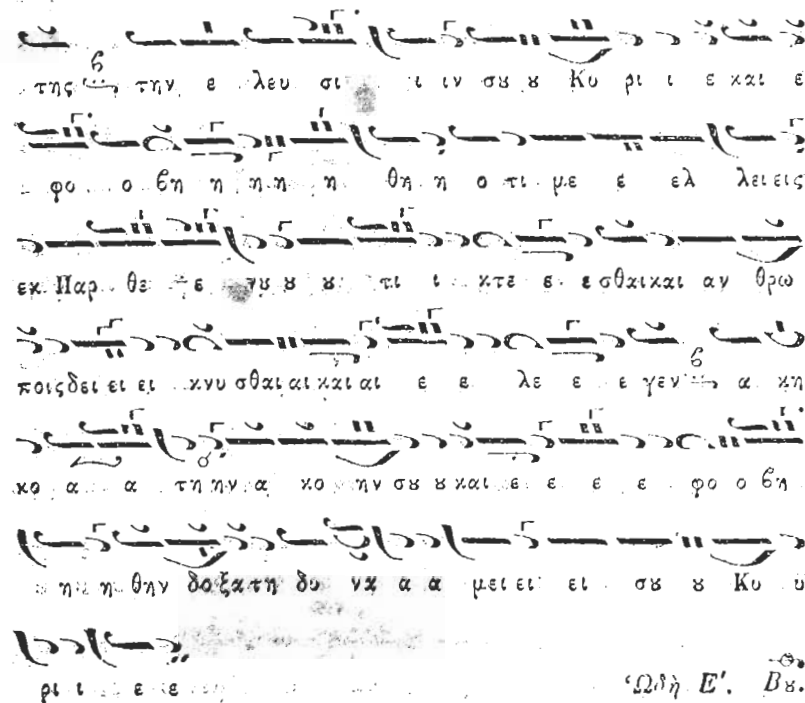 της την ε λευ σι ι ιν σου ου Κυ ρι ι ε και ε
φο ο βη η η η η θη η ο τι με ε ελ λειεις
εκ Παρ θε ε ε νου ου ου τι ι κτε ε ε σθαικαι αν θρω
ποιςδει ει ει ει κνυ σθαι αι και αι ε ε λε ε ε γεν α κη
κο α α τη ην α κο ην σου ου και ε ε ε ε φο ο βη
η η η θην δοξατη δυ να α α μει ει ει ει σου ου Κυ υ
ρι ι ε ε
Ὠδὴ Ε'. Βου.